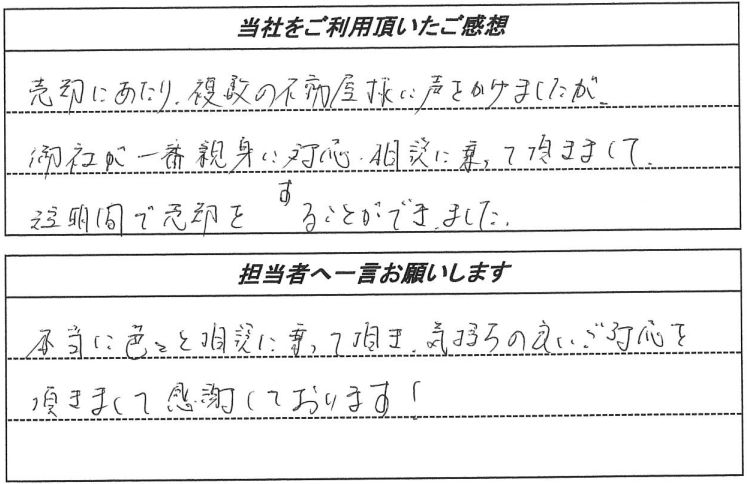 当社をご利用頂いたご感想
売却にあたり、複数の不動屋様に声をかけましたが、
御社が一番親身に対応・相談に乗って頂きまして、
短期間で売却をすることができました。
担当者へ一言お願いします
本当に色々と相談に乗って頂き、気持ちの良いご対応を
頂きまして感謝しております！